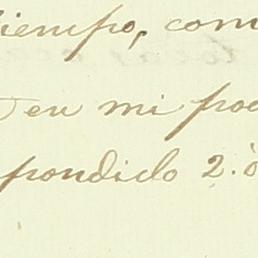 tiempo, com
en mi pod
pondido 2.º